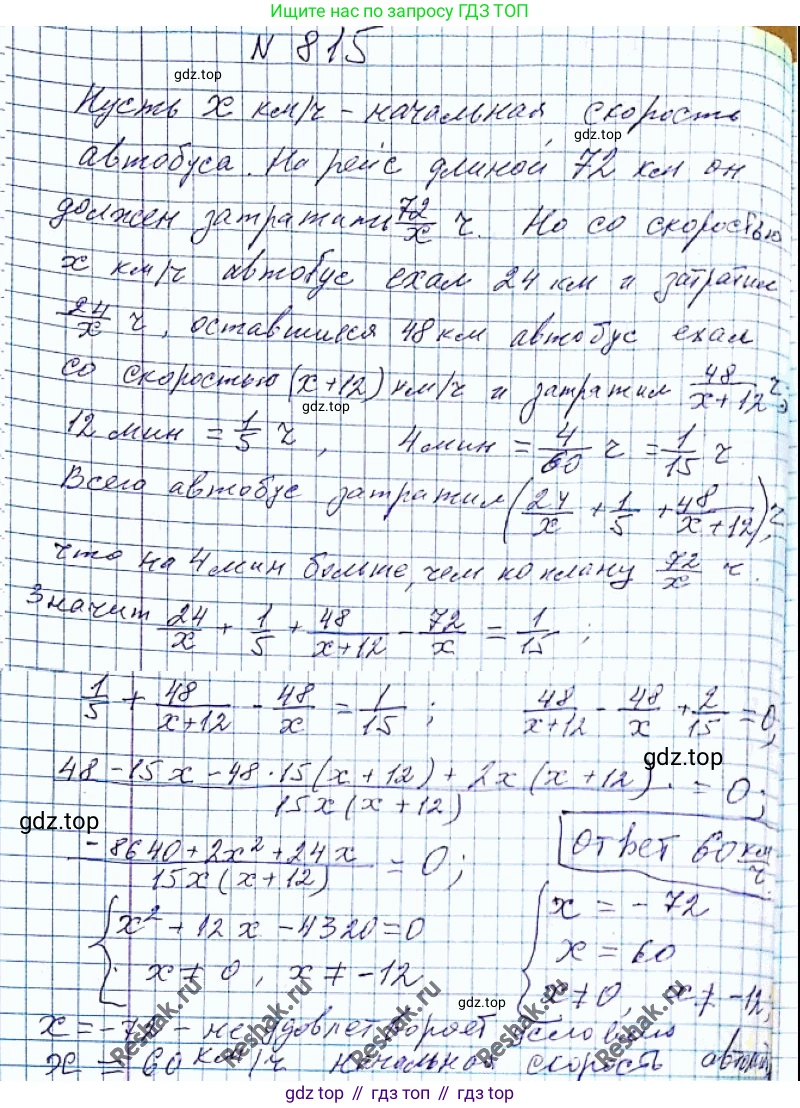 Ищите нас по запросу ГДЗ ТОП
N 815
gdz.top
Пусть x км/ч - начальная скорость
gdz.top
автобуса. На рейс длиной 72 км он
должен затратить 72/x ч. Но со скоростью
x км/ч автобус ехал 24 км и затратил
24/x ч, оставшиеся 48 км автобус ехал
со скоростью (x+12) км/ч и затратил 48/(x+12) ч,
gdz.top
12 мин = 1/5 ч, 4 мин = 4/60 ч = 1/15 ч.
Всего автобус затратил (24/x + 1/5 + 48/(x+12)) ч,
что на 4 мин больше, чем по плану 72/x ч.
Значит 24/x + 1/5 + 48/(x+12) - 72/x = 1/15 ;
1/5 + 48/(x+12) - 48/x = 1/15 ; 48/(x+12) - 48/x + 2/15 = 0;
gdz.top
(48 - 15x - 48·15(x+12) + 2x(x+12))/(15x(x+12)) = 0;
gdz.top
(-8640 + 2x² + 24x)/(15x(x+12)) = 0; Ответ 60 км/ч.
{x² + 12x - 4320 = 0 {x = -72
x = 60
x ≠ 0, x ≠ -12 x ≠ 0, x ≠ -12;
gdz.top
x = -72 - не удовлетворяет условию
x = 60 км/ч начальная скорость
Reshak.ru
Reshak.ru
Reshak.ru
Reshak.ru
gdz.top gdz.top gdz.top gdz.top